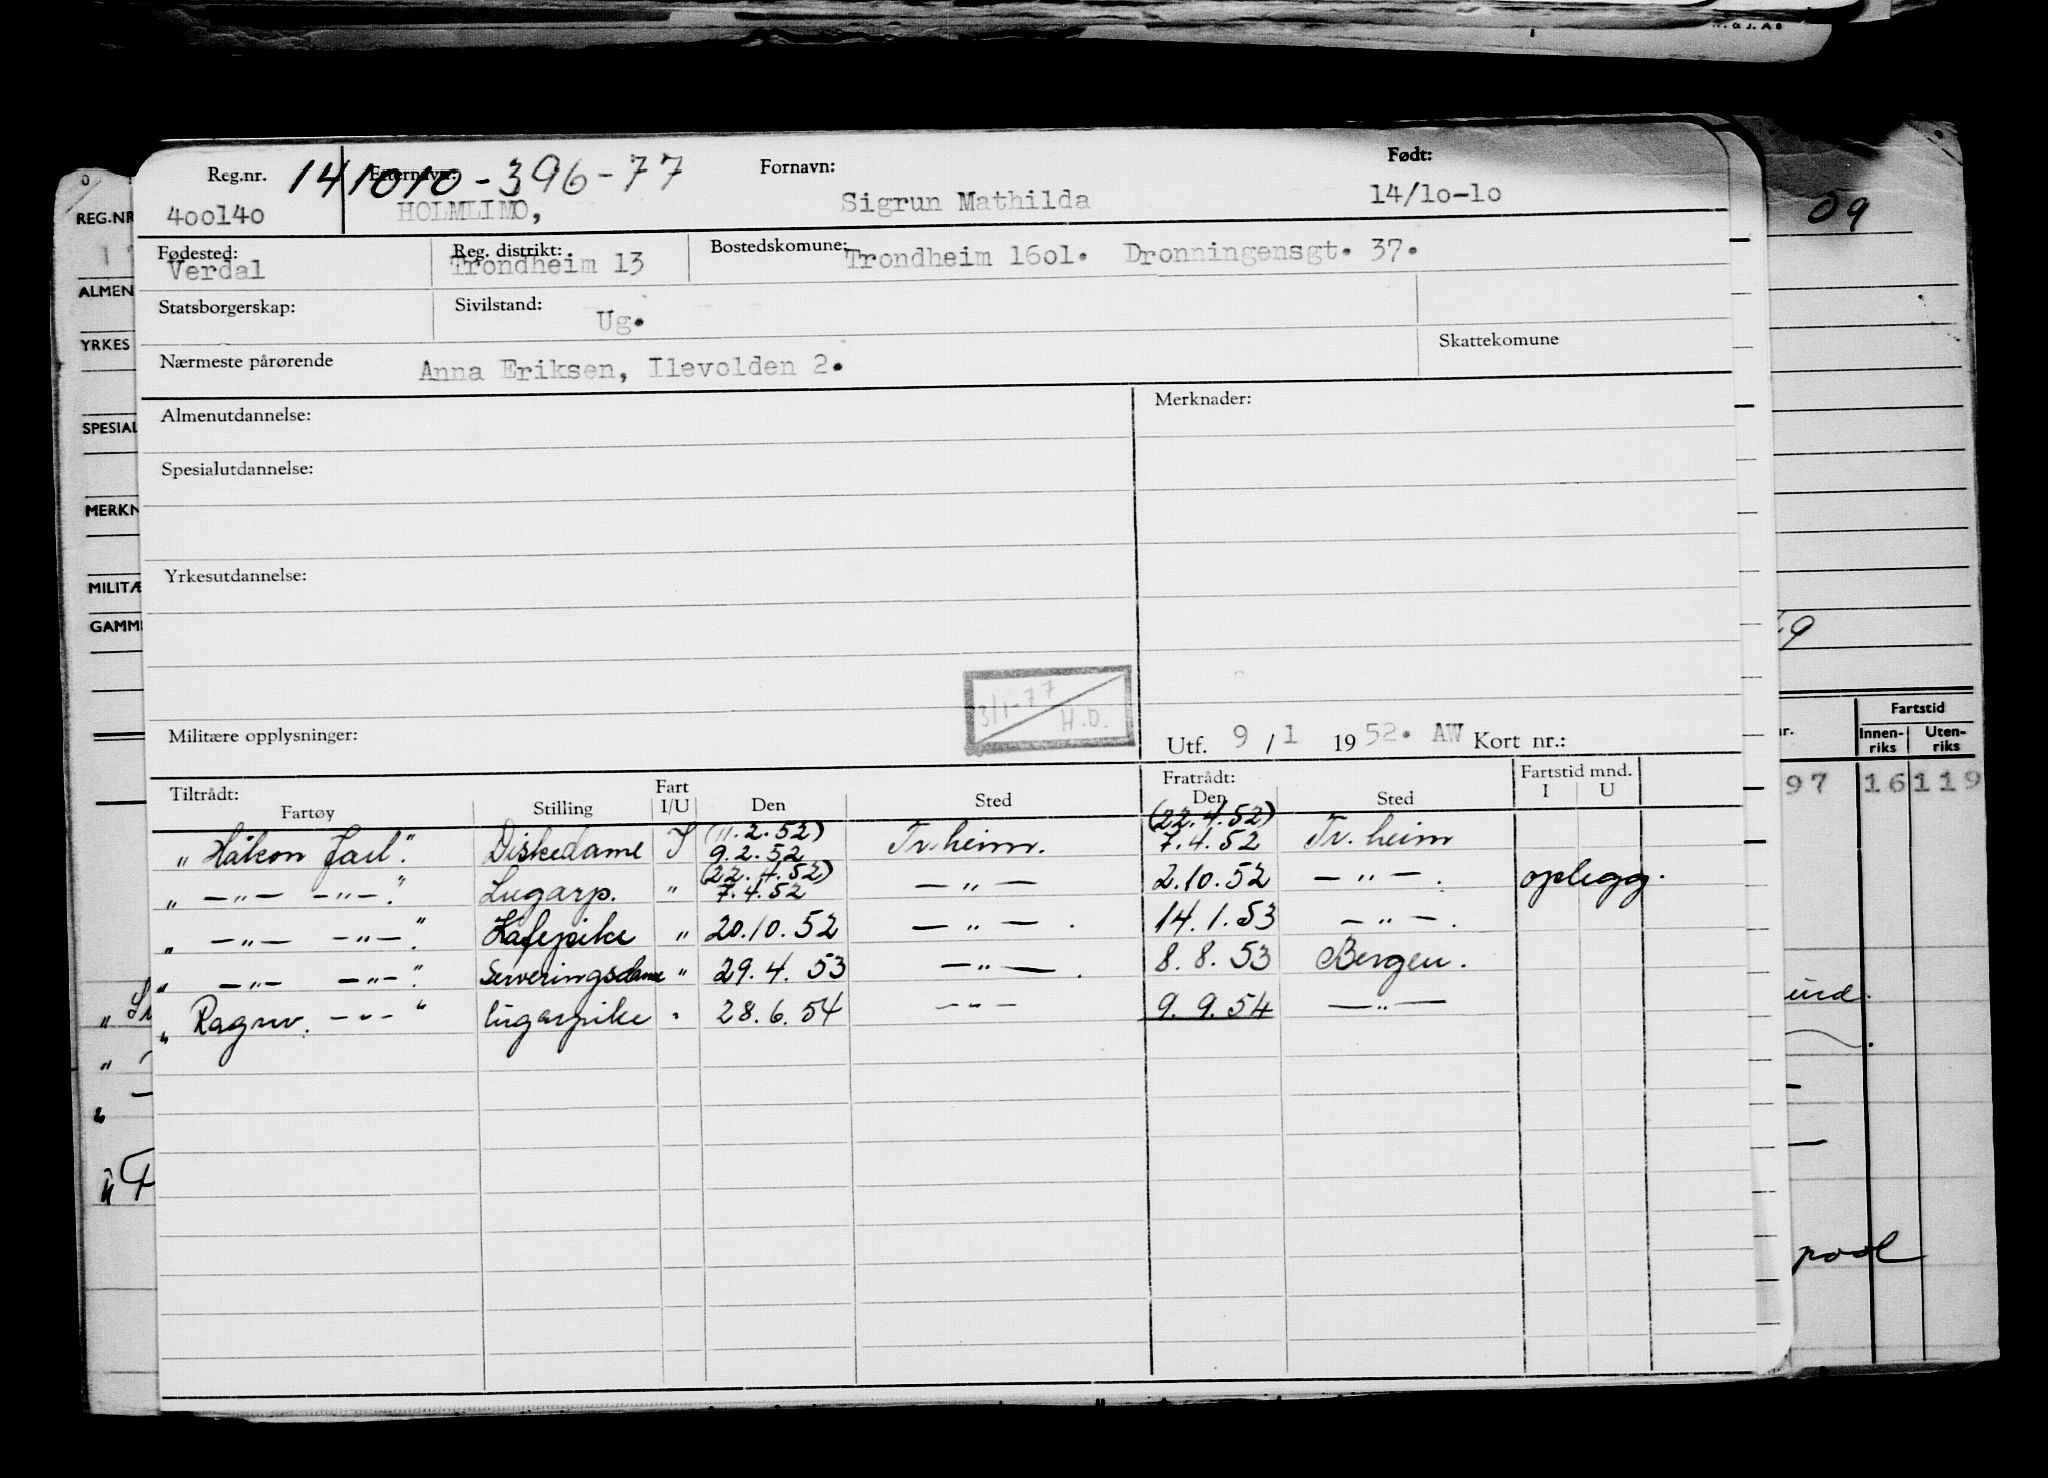 Reg.nr. 141010-396-77 Etternavn: Fornavn: Født:
400140 HOLMLIMO, Sigrun Mathilda 14/10-10
Fødested: Reg. distrikt: Bostedskomune:
Verdal Trondheim 13 Trondheim 1601. Dronningensgt. 37.
Statsborgerskap: Sivilstand: Ug.
Nærmeste pårørende Anna Eriksen, Ilevolden 2. Skattekomune
Almenutdannelse: Merknader:
Spesialutdannelse:
Yrkesutdannelse:
3/1-77 H.D.
Militære opplysninger: Utf. 9/1 1952. AW Kort nr.:
Tiltrådt: Fart Fratrådt: Fartstid mnd.
Fartøy Stilling I/U Den Sted Den Sted I U
(11.2.52) (22.4.52)
"Håkon Jarl". Diskedame I 9.2.52 Tr.heim. 7.4.52 Tr.heim
(22.4.52)
" —"— —"—." Lugarp. " 7.4.52 —"— 2.10.52 —"—. oplegg.
" —"— —"—." Kafepike " 20.10.52 —"—. 14.1.53 —"—.
" —"— —"—" Serveringsdame " 29.4.53 —"—. 8.8.53 Bergen.
" Ragnv. —"—" Lugarpike " 28.6.54 —"— 9.9.54 —"—
REG.NR
ALMEN
YRKES
SPESIAL
MERKN
MILITÆ
GAMM
09
Fartstid
Innen-riks Uten-riks
97 16 119
pool